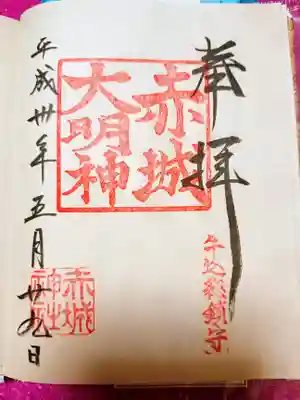 牛込総鎮守
奉拝
赤城
大明神
平成卅年五月廿九日
赤城
神社